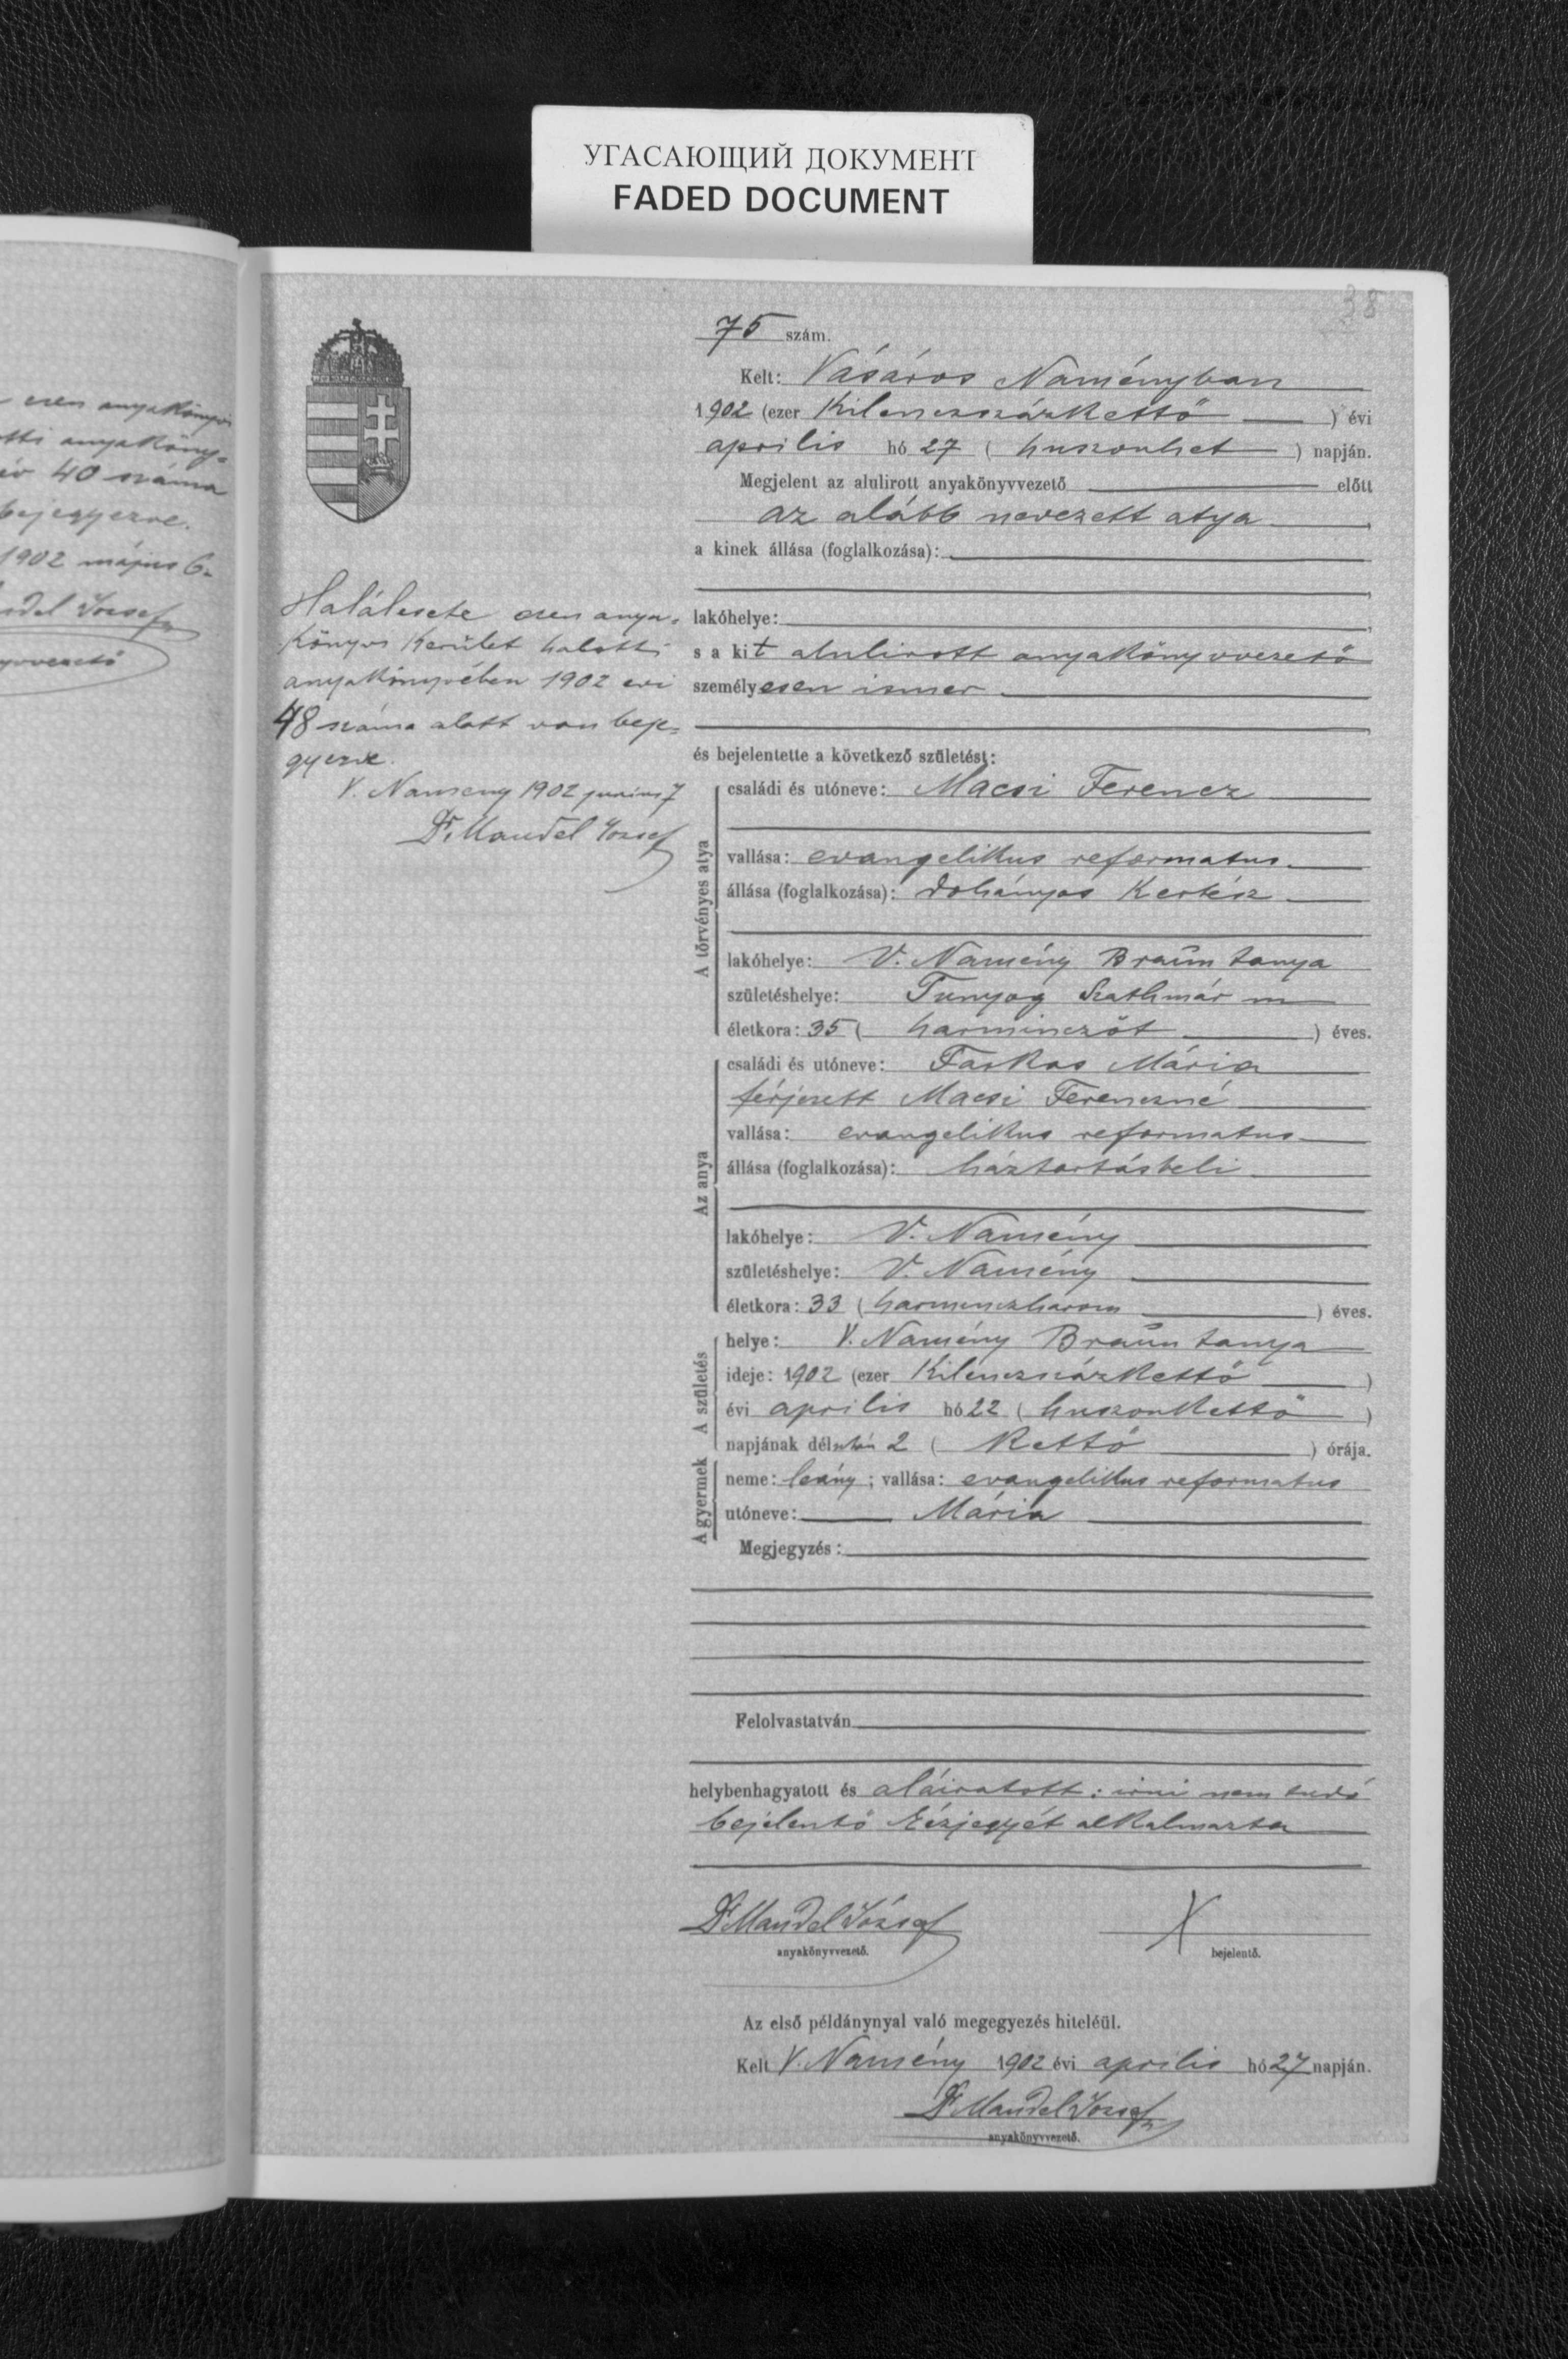 УГАСАЮЩИЙ ДОКУМЕНТ
FADED DOCUMENT
38
ezen anyakönyvi
anyaköny-
év 40 száma
bejegyezve.
1902 május 6.
József
75 szám.
Kelt: Vásáros Naményban
1902 (ezer kilenczszázkettő ) évi
aprilis hó 27 ( huszonhet ) napján.
Megjelent az alulirott anyakönyvvezető előtt
az alább nevezett atya ,
a kinek állása (foglalkozása):
,
lakóhelye: ,
s a kit alulirott anyakönyvvezető
személyesen ismer
,
és bejelentette a következő születést:
Halálesete ezen anya-
könyvi kerület halotti
anyakönyvében 1902 evi
48 száma alatt van beje-
gyezve.
V. Nameny 1902 junius 7
Dr. Mandel József
A törvényes atya
családi és utóneve: Macsi Ferencz
vallása: evangelikus reformatus
állása (foglalkozása): dohányos kertész
lakóhelye: V. Namény Braün tanya
születéshelye: Tunyog Szathmár m
életkora: 35 ( harminczöt ) éves.
Az anya
családi és utóneve: Farkas Mária
férjezett Macsi Ferenczné
vallása: evangelikus reformatus
állása (foglalkozása): háztartásbeli
lakóhelye: V. Namény
születéshelye: V. Namény
életkora: 33 ( harminczharom ) éves.
A születés
helye: V. Namény Braün tanya
ideje: 1902 (ezer kilenczszázkettő )
évi aprilis hó 22 ( huszonkettő )
napjának délután 2 ( kettő ) órája.
A gyermek
neme: leány ; vallása: evangelikus reformatus
utóneve: Mária
Megjegyzés:
Felolvastatván
helybenhagyatott és aláiratott: irni nem tudó
bejelentő kézjegyét alkalmazta
Dr. Mandel József X
anyakönyvvezető. bejelentő.
Az első példánynyal való megegyezés hiteléül.
Kelt V. Namény 1902 évi aprilis hó 27 napján.
Dr. Mandel József
anyakönyvvezető.